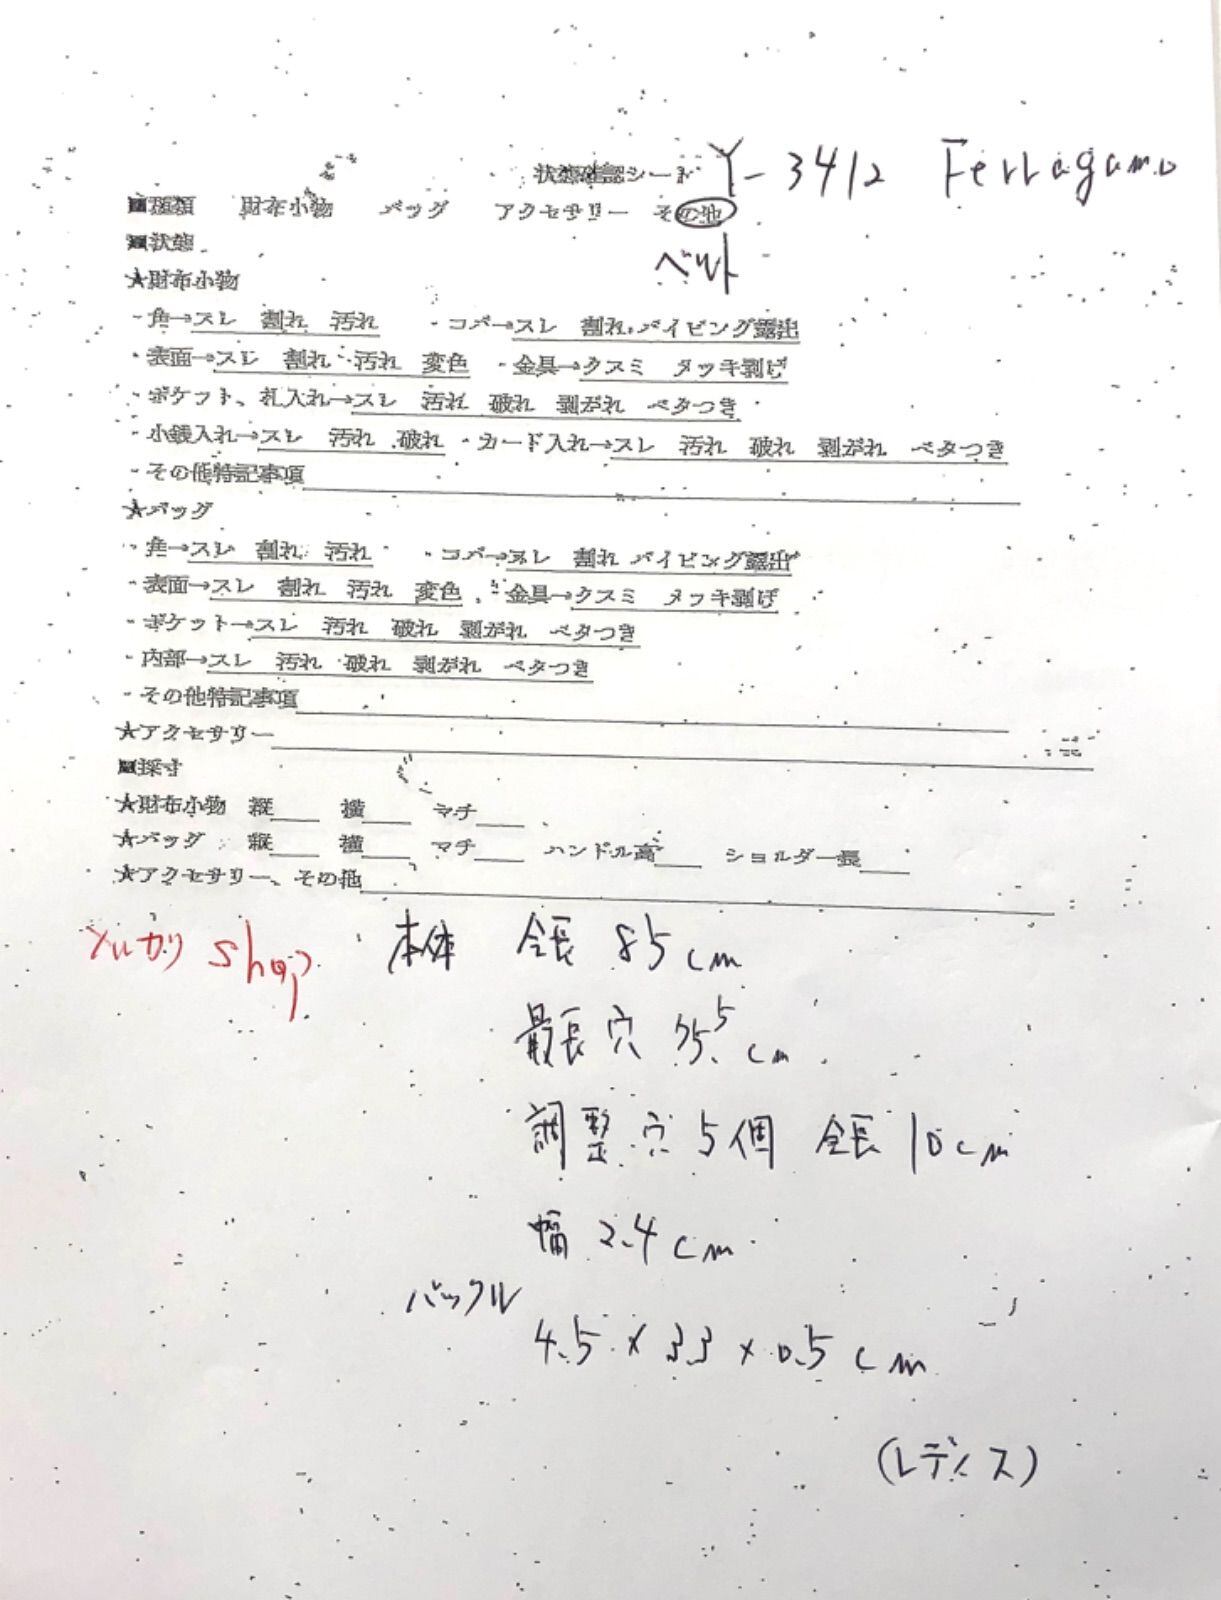 状態確認シート Y-3412 Ferragamo
■種類 財布小物 バッグ アクセサリー その他
■状態 ベルト
★財布小物
・角→スレ 割れ 汚れ ・コバ→スレ 割れ パイピング露出
・表面→スレ 割れ 汚れ 変色 ・金具→クスミ メッキ剥げ
・ポケット、札入れ→スレ 汚れ 破れ 剥がれ ベタつき
・小銭入れ→スレ 汚れ 破れ ・カード入れ→スレ 汚れ 破れ 剥がれ ベタつき
・その他特記事項
★バッグ
・角→スレ 割れ 汚れ ・コバ→スレ 割れ パイピング露出
・表面→スレ 割れ 汚れ 変色 ・金具→クスミ メッキ剥げ
・ポケット→スレ 汚れ 破れ 剥がれ ベタつき
・内部→スレ 汚れ 破れ 剥がれ ベタつき
・その他特記事項
★アクセサリー
■採寸
★財布小物 縦 横 マチ
★バッグ 縦 横 マチ ハンドル高 ショルダー長
★アクセサリー、その他
shop 本体 全長 85cm
最長穴 cm
調整穴 5個 全長 10cm
幅 2.4cm
バックル
4.5×3.3×0.5cm
(レディス)